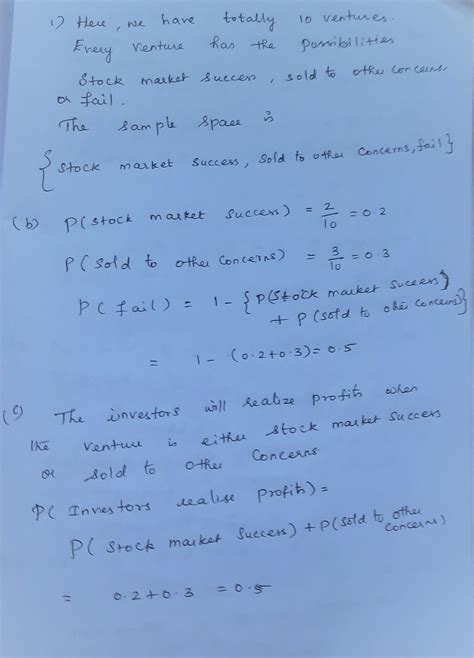 1) Here, we have totally 10 ventures.
Every venture has the possibilities
stock market success, sold to other concerns,
or fail.
The sample space is
{stock market success, sold to other concerns, fail}
(b) P(stock market success) = 2/10 = 0.2
P(sold to other concerns) = 3/10 = 0.3
P(fail) = 1 - {P(stock market success)
+ P(sold to other concerns)}
= 1 - (0.2+0.3) = 0.5
(c) The investors will realize profits when
the venture is either stock market success
or sold to other concerns
P(Investors realise profits) =
P(stock market success) + P(sold to other
concerns)
= 0.2+0.3 = 0.5